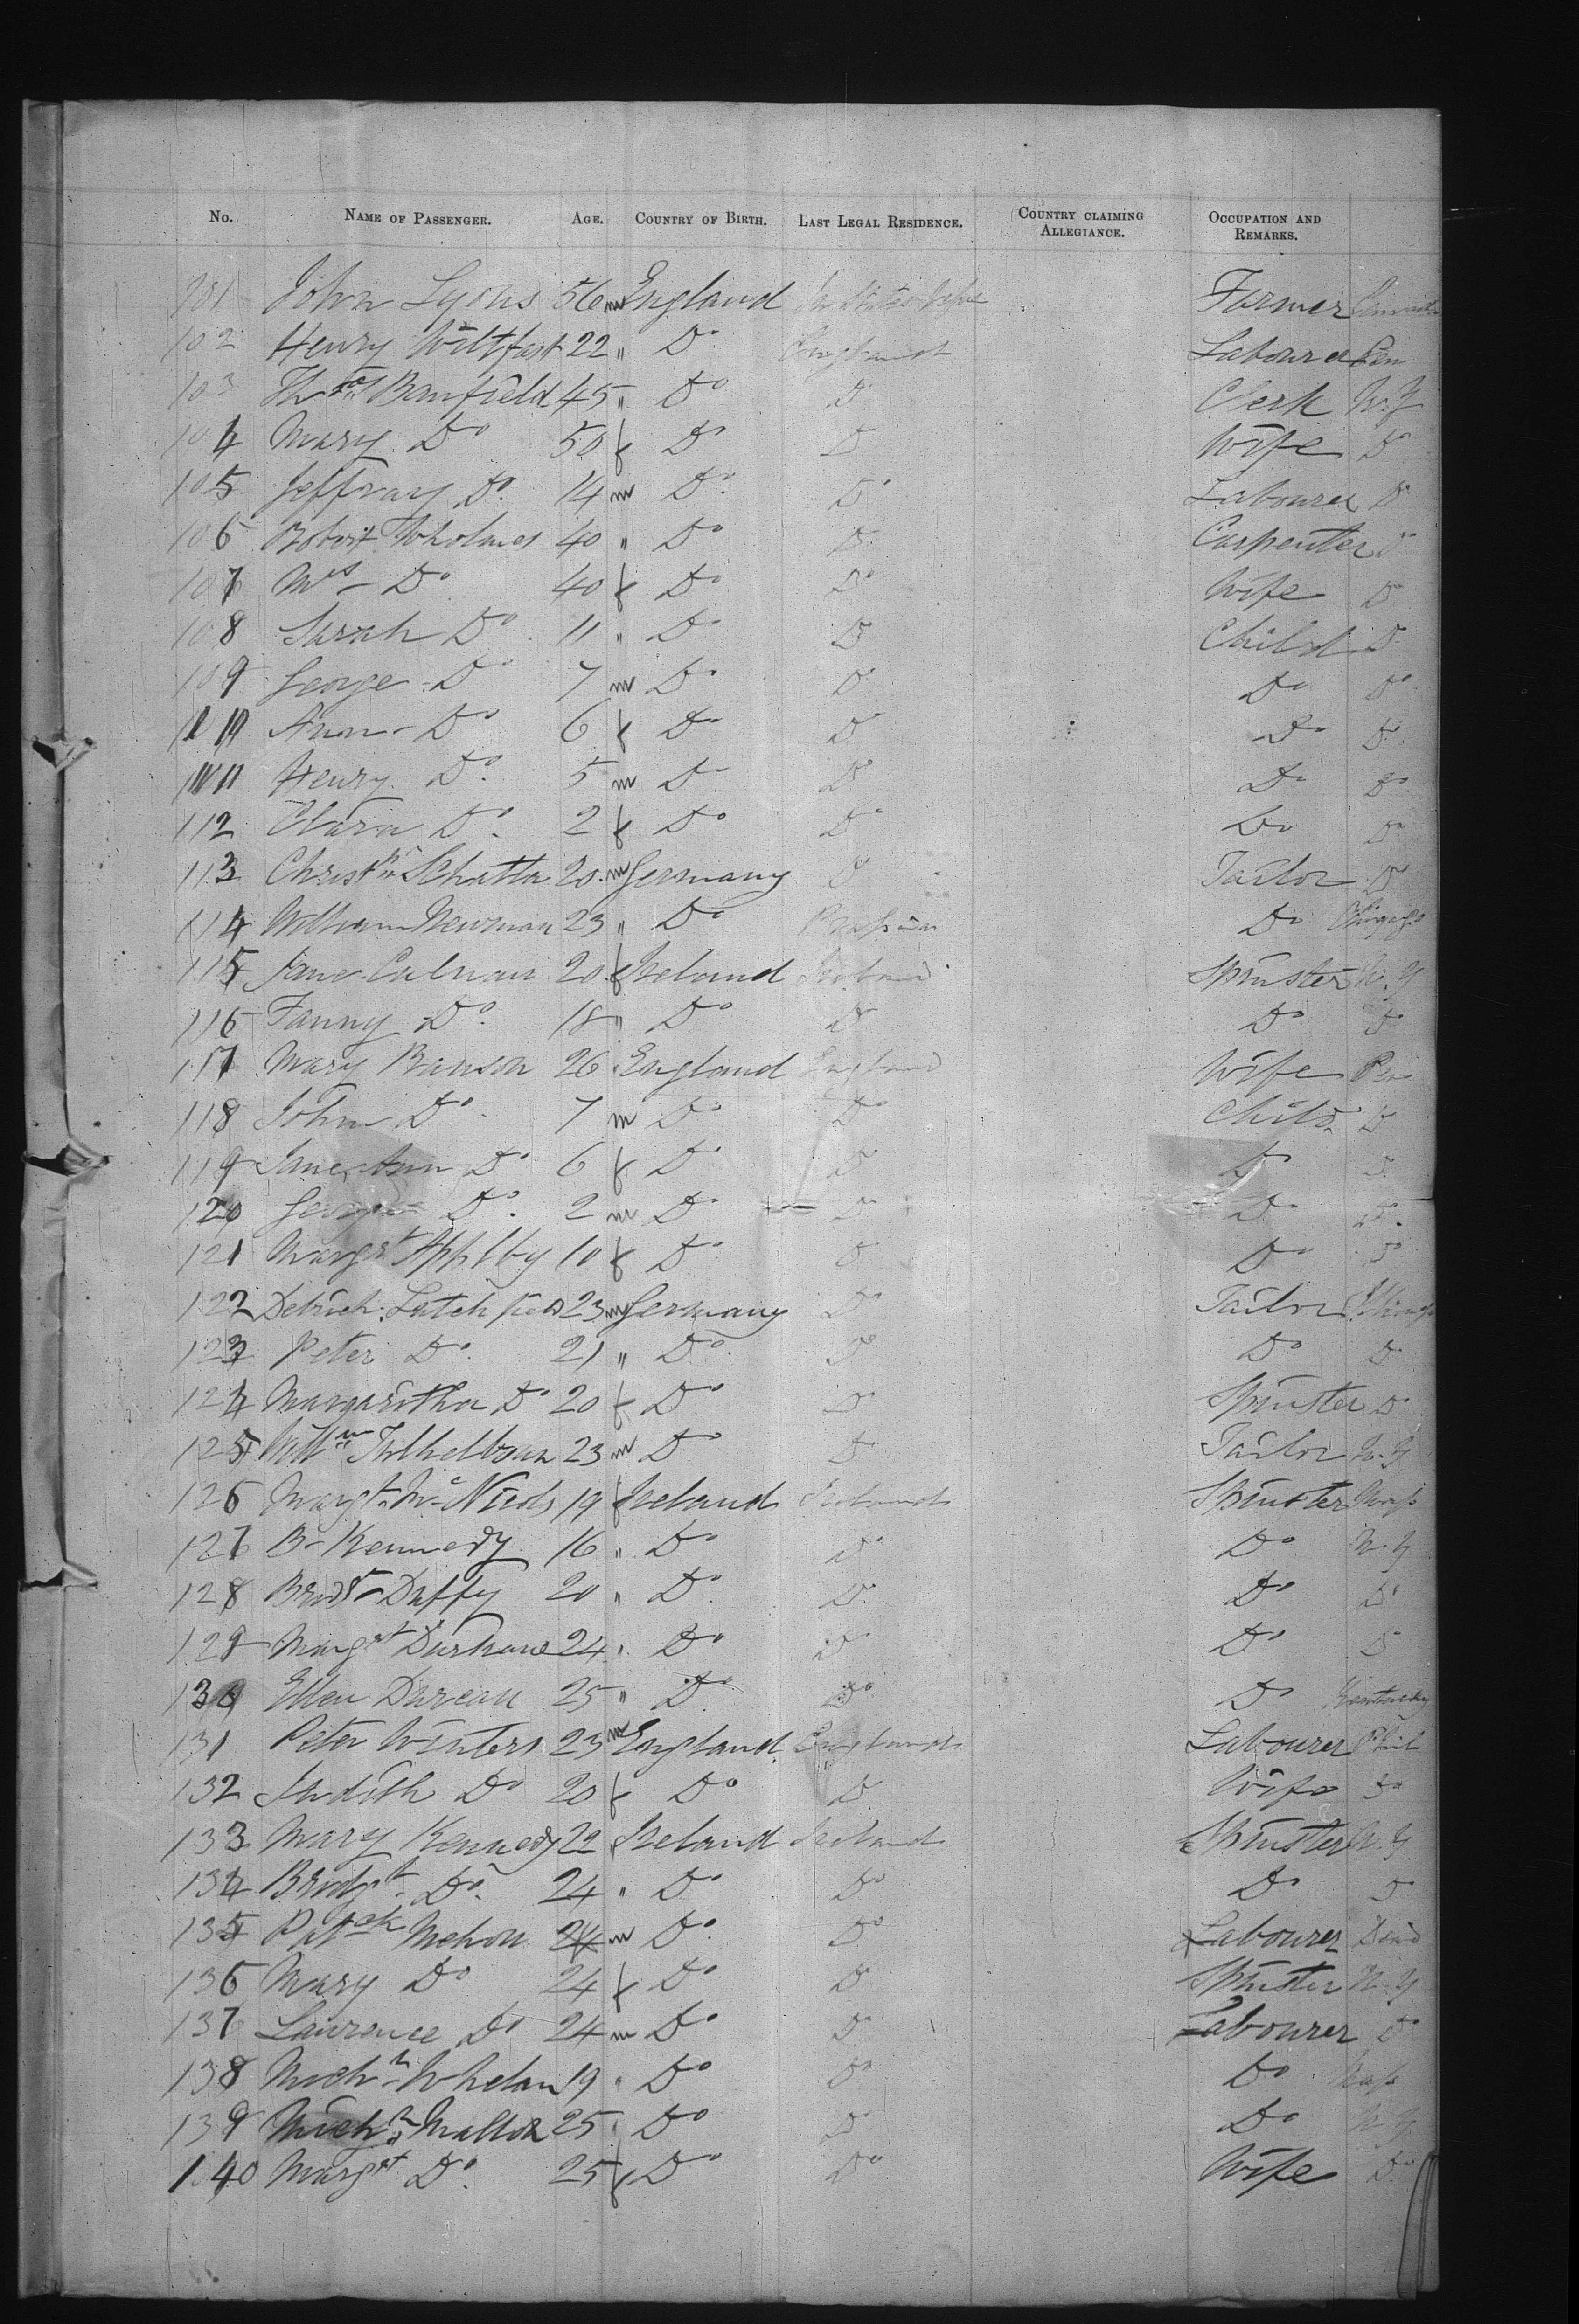 No. NAME OF PASSENGER. AGE. COUNTRY OF BIRTH. LAST LEGAL RESIDENCE. COUNTRY CLAIMING ALLEGIANCE. OCCUPATION AND REMARKS.
101 John Lyons 56 m England Farmer
102 Henry 22 " Do England Labourer Pen
103 Thos Banfield 45 " Do Do Clerk N.Y
104 Mary Do 50 f Do Do Wife Do
105 Jeffray Do 14 m Do Do Labourer Do
106 Robert 40 " Do Do Carpenter Do
107 Mrs Do 40 f Do Do Wife Do
108 Sarah Do 11 " Do Do Child Do
109 George Do 7 m Do Do Do Do
110 Ann Do 6 f Do Do Do Do
111 Henry Do 5 m Do Do Do Do
112 Clara Do 2 f Do Do Do Do
113 Christn Schatta 20 m Germany Do Tailor Do
114 William Newman 23 " Do Do Chicago
115 Jane Calnan 20 f Ireland Ireland Spinster N.Y
116 Fanny Do 18 " Do Do Do Do
117 Mary Banson 26 " England England Wife Pen
118 John Do 7 m Do Do Child Do
119 Jane Ann Do 6 f Do Do Do Do
120 George Do 2 m Do Do Do Do
121 Margt Applby 10 f Do Do Do Do
122 Detrich 23 m Germany Do Tailor
123 Peter Do 21 " Do Do Do Do
124 Margaritha Do 20 f Do Do Spinster Do
125 Willm 23 m Do Do Tailor N.Y
126 Margt 19 f Ireland Ireland Spinster Mass
127 B Kennedy 16 " Do Do Do N.Y
128 Bridt Duffy 20 " Do Do Do Do
129 Margt 24 " Do Do Do Do
130 Ellen 25 " Do Do Do Kentucky
131 Peter Winters 23 m England England Labourer Phil
132 Judith Do 20 f Do Do Wife Do
133 Mary Kennedy 22 " Ireland Ireland Spinster N.Y
134 Bridgt Do 24 " Do Do Do Do
135 Patck Mehon 24 m Do Do Labourer
136 Mary Do 24 f Do Do Spinster N.Y
137 Laurence Do 24 m Do Do Labourer Do
138 Michl Whelan 19 " Do Do Do Mass
139 Michl Mallon 25 " Do Do Do N.Y
140 Margt Do 25 f Do Do Wife Do